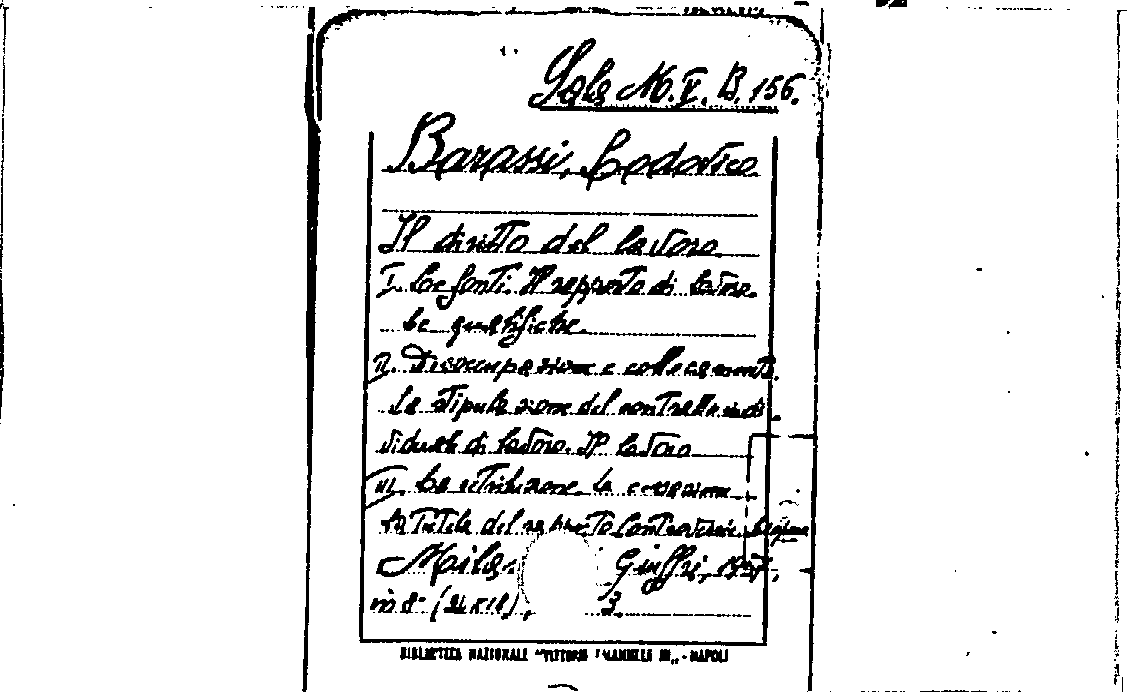 Sala M. V. B. 156.
Barassi, Lodovico
Il diritto del lavoro
I. Le fonti. Il rapporto di lavoro.
Le qualifiche.
II. Disoccupazione e collocamento.
La stipulazione del contratto indi
viduale di lavoro. Il lavoro
III. La retribuzione. La cessazione
La tutela del rapporto Controversie
Milano Giuffrè, 1957,
in 8° (24x18), 3.
BIBLIOTECA NAZIONALE "VITTORIO EMANUELE III„ - NAPOLI